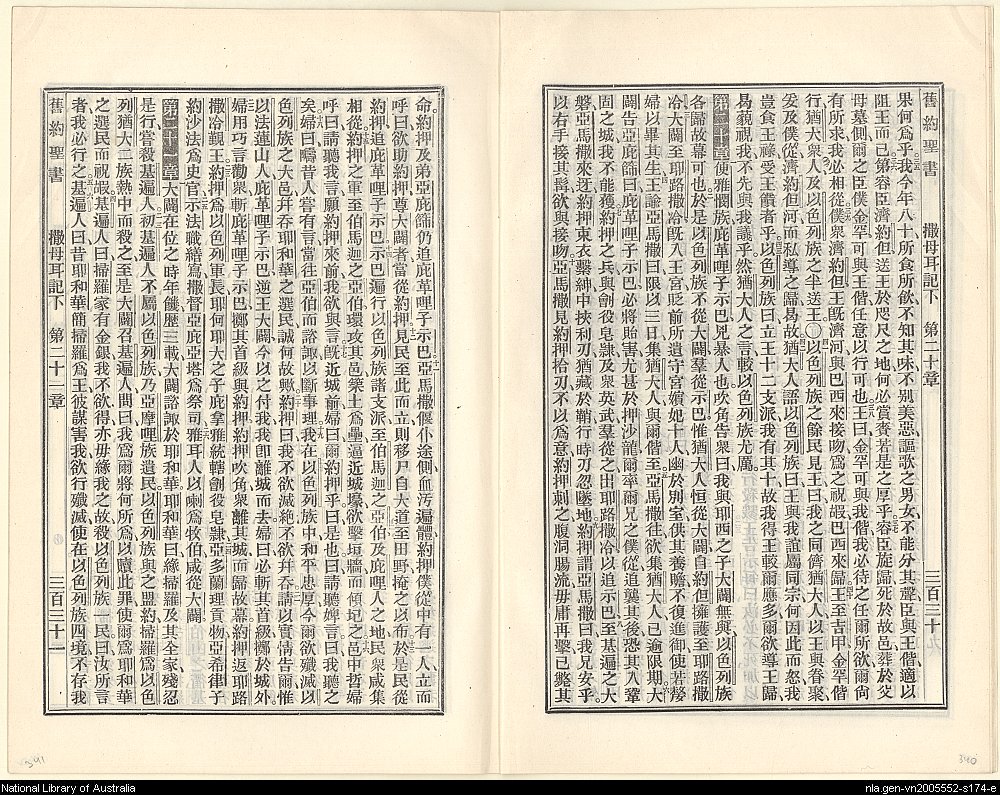 舊約聖書 撒母耳記下 第二十章 三百三十
果何爲乎我今年八十所食所飲不知其味不别美惡謳歌之男女不能分其聲臣與王偕適以
阻王而已第容臣濟約但送王於咫尺之地何必賞賚若是之厚乎容臣旋歸死於故邑葬於父
母墓側爾之臣僕金罕可與王偕任意以行可也王曰金罕可與我偕我必待之任爾所欲爾尙
有所求我必相從僕衆濟約但王旣濟河與巴西來接吻爲之祝嘏巴西來歸王至吉甲金罕偕
行猶大衆人及以色列族之半送王〇以色列族之餘民見王曰我之同儕猶大人以王與眷聚
爰及僕從濟約但河而私導之歸曷故猶大人語以色列族曰王與我誼屬同宗何因此而怒我
豈食王祿受王饋者乎以色列族曰立王十二支派我有其十故我得王較爾應多爾欲導王歸
曷藐視我不先與我議乎然猶大人之言較以色列族尤厲
第二十章便雅憫族庇革哩子示巴兇暴人也吹角告衆曰我與耶西之子大闢無與以色列族
各歸故幕可也於是以色列族不從大闢羣從示巴惟猶大人恒從大闢自約但擁護至耶路撒
冷大闢至耶路撒冷旣入王宮貶前所遺守宮嬪妃十人幽於別室供其養贍不復進御使若嫠
婦以畢其生王諭亞馬撒曰限以三日集猶大人與爾偕至亞馬撒往欲集猶大人已逾限期大
闢告亞庇篩曰庇革哩子示巴必將貽害尤甚於押沙龍爾率爾兄之僕從追襲其後恐其入鞏
固之城我不能獲約押之兵與劊役皂隸及衆英武羣從之出耶路撒冷以追示巴至基遍之大
磐亞馬撒來迓約押束衣繫紳中挾利刃猶藏於鞘行時刃忽墜地約押謂亞馬撒曰我兄安乎
以右手接其鬚欲與接吻亞馬撒見約押拾刃不以爲意約押刺之腹洞腸流毋庸再擊已斃其
命約押及弟亞庇篩仍追庇革哩子示巴亞馬撒偃仆途側血污遍體約押僕從中有一人立而
呼曰欲助約押尊大闢者當從約押見民至此而立則移尸自大道至田野掩之以布於是民從
約押追庇革哩子示巴示巴遍行以色列族諸支派至伯馬迦之亞伯及庇哩人之地民衆咸集
相從約押之軍至伯馬迦之亞伯環攻其邑築土爲壘逼近城壕欲擊垣牆而傾圮之邑中哲婦
呼曰請聽我言願約押來前我欲與言旣近城前婦曰爾約押乎曰是也曰請聽婢言曰我聽之
矣婦曰疇昔人嘗有言當往亞伯而諮諏以斷事理我在以色列族中和平忠厚今爾欲殲滅以
色列族之大邑并吞耶和華之選民誠何故歟約押曰我不欲滅絶不欲并吞請以實情告爾惟
以法蓮山人庇革哩子示巴逆王大闢今以之付我我卽離城而去婦曰必斬其首級擲於城外
婦用巧言勸衆斬庇革哩子示巴擲其首級與約押約押吹角衆離其城而歸故幕約押返耶路
撒冷覲王約押爲以色列軍長耶何耶大之子庇拿雅統轄劊役皂隸亞多蘭理貢物亞希律子
約沙法爲史官示法職繕寫撒督亞庇亞塔爲祭司雅耳人以喇爲牧伯咸從大闢
第二十一章大闢在位之時年饑歷三載大闢諮諏於耶和華耶和華曰緣掃羅及其全家殘忍
是行嘗殺基遍人初基遍人不屬以色列族乃亞摩哩族遺民以色列族與之盟約掃羅爲以色
列猶大二族熱中而殺之至是大闢召基遍人問曰我爲爾將何所爲以贖此罪使爾爲耶和華
之選民而祝嘏基遍人曰掃羅家有金銀我不欲得亦毋緣我之故殺以色列族一民曰汝所言
者我必行之基遍人曰昔耶和華簡掃羅爲王彼謀害我欲行殲滅使在以色列族四境不存我
舊約聖書 撒母耳記下 第二十一章 三百三十一
341
340
National Library of Australia
nla.gen-vn2005552-s174-e